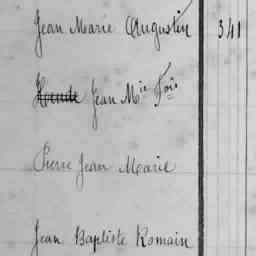 Jean Marie Augustin 341
Jean M^ie F^ois
Pierre Jean Marie
Jean Baptiste Romain